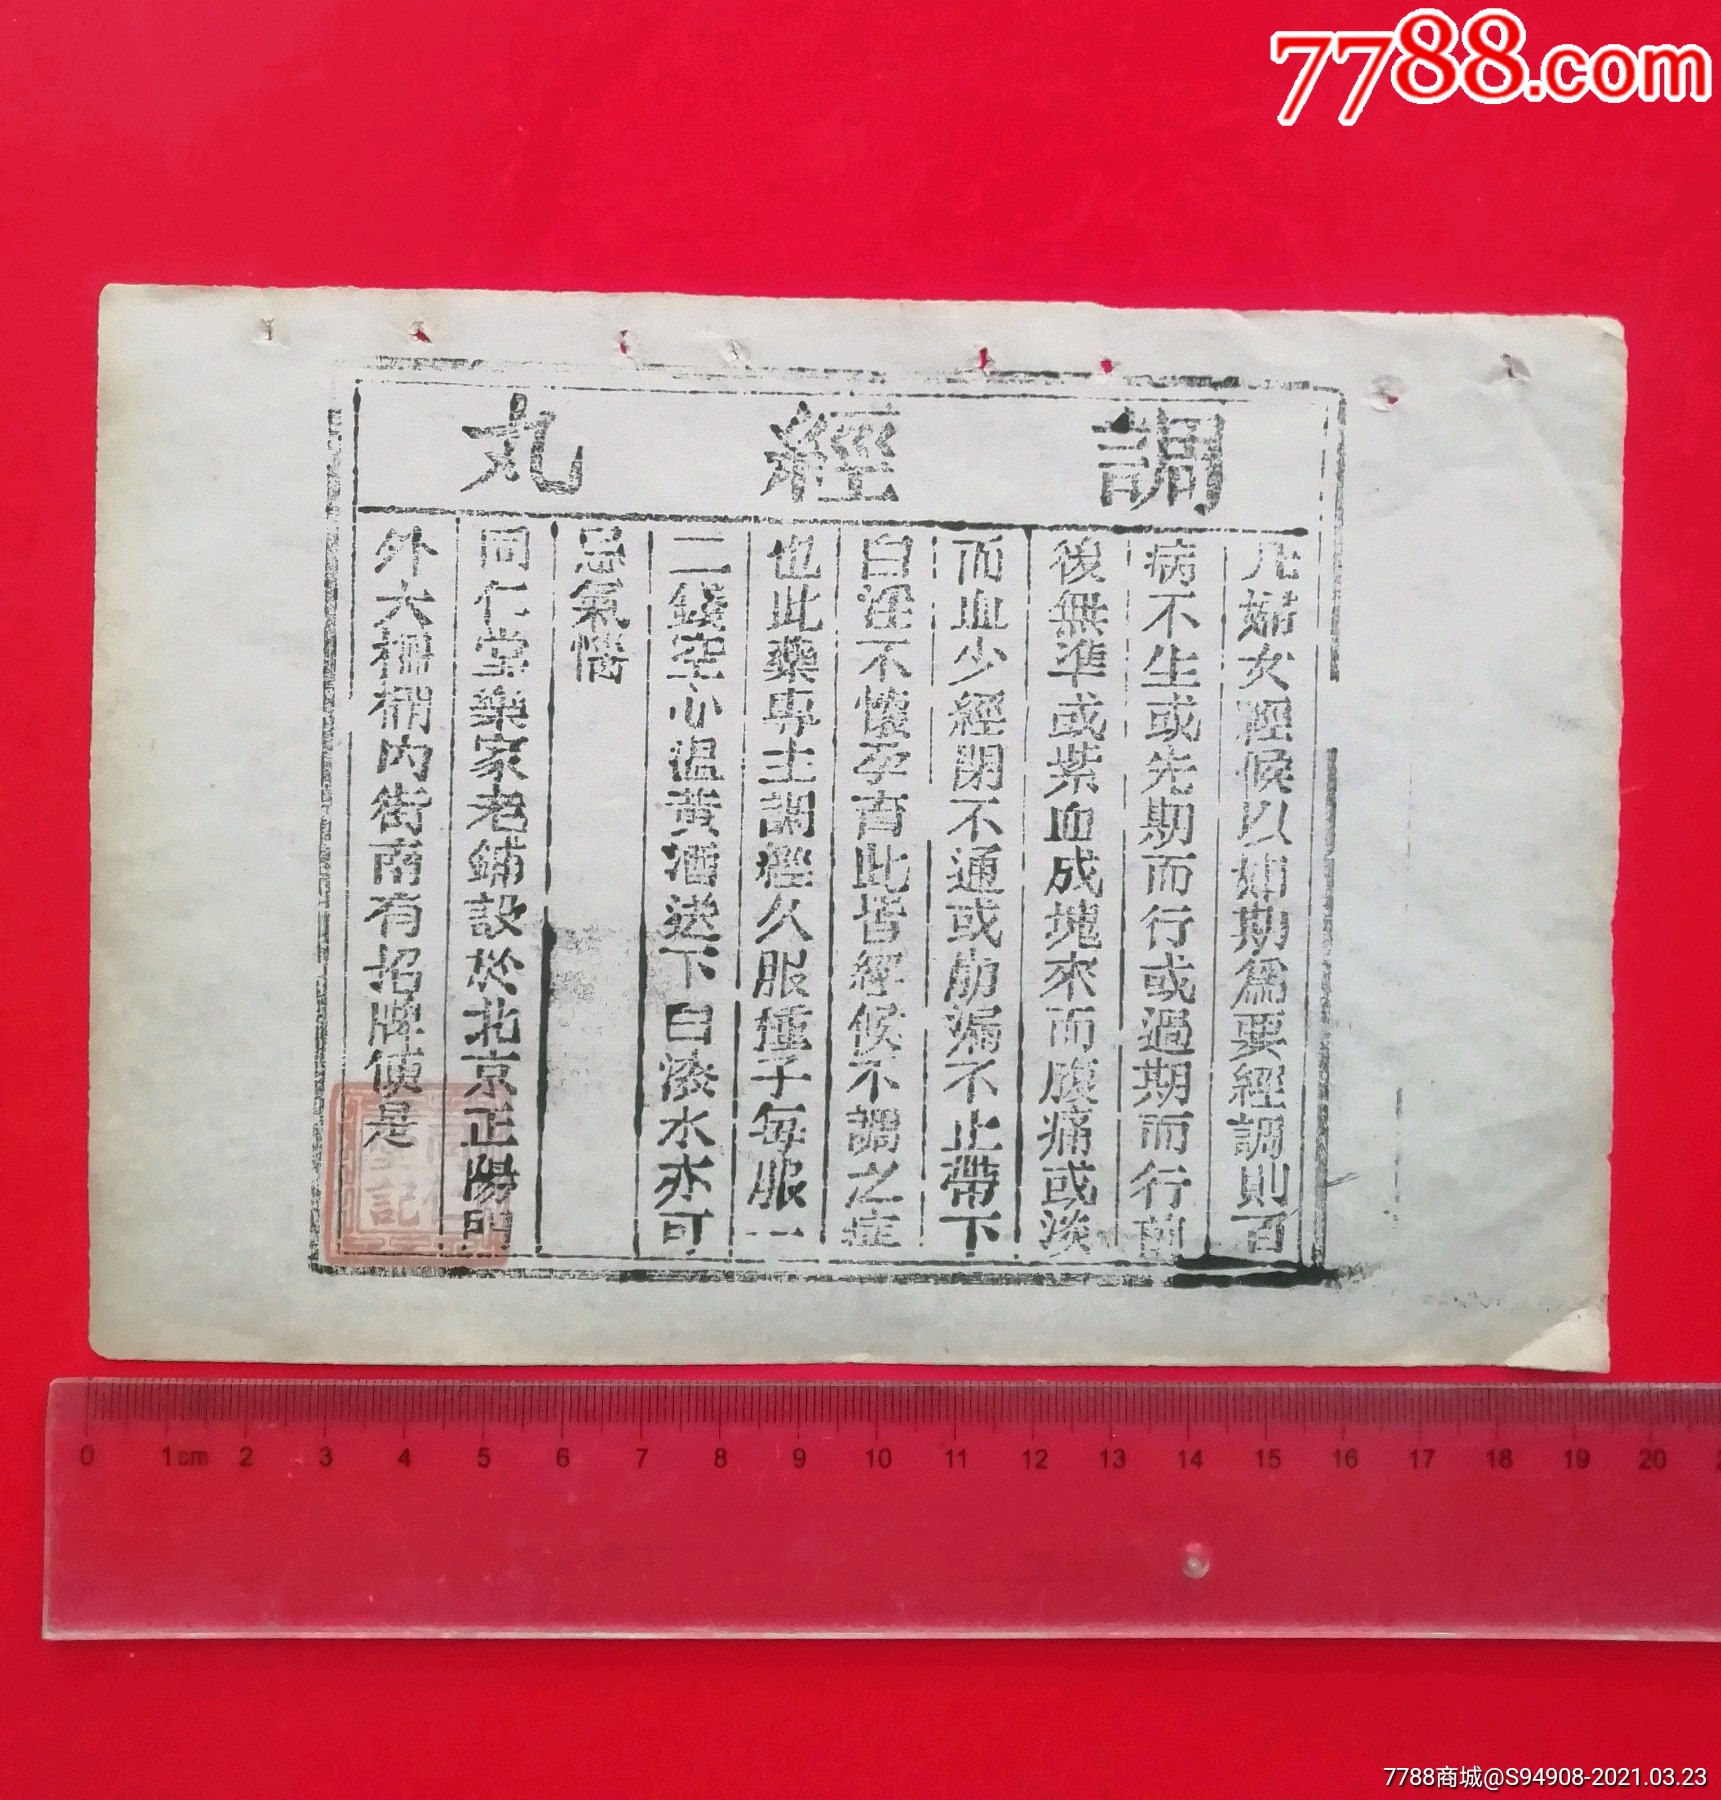 7788.com
調經丸
凡婦女經候以如期爲要經調則百
病不生或先期而行或過期而行前
後無準或紫血成塊來而腹痛或淡
而血少經閉不通或崩漏不止帶下
白淫不懷孕育此皆經候不調之症
也此藥專主調經久服種子每服一
二錢空心温黃酒送下白滚水亦可
忌氣惱
同仁堂樂家老鋪設於北京正陽門
外大柵欄內街南有招牌便是
同仁堂記
0 1cm 2 3 4 5 6 7 8 9 10 11 12 13 14 15 16 17 18 19 20
7788商城@S94908-2021.03.23